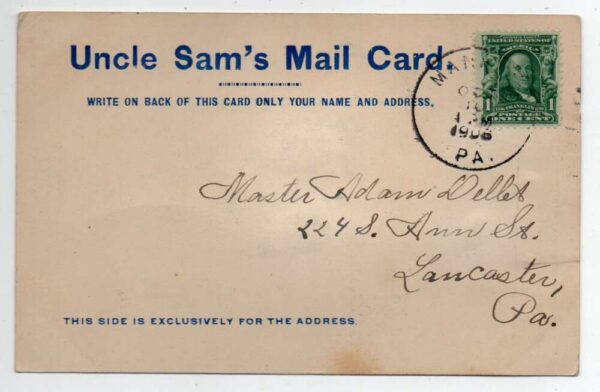 Uncle Sam's Mail Card.
WRITE ON BACK OF THIS CARD ONLY YOUR NAME AND ADDRESS.
UNITED STATES OF
AMERICA
1 1
FRANKLIN
POSTAGE
ONE CENT
MAN
1908
PA.
Master Adam Dellet
224 S. Ann St.
Lancaster,
Pa.
THIS SIDE IS EXCLUSIVELY FOR THE ADDRESS.